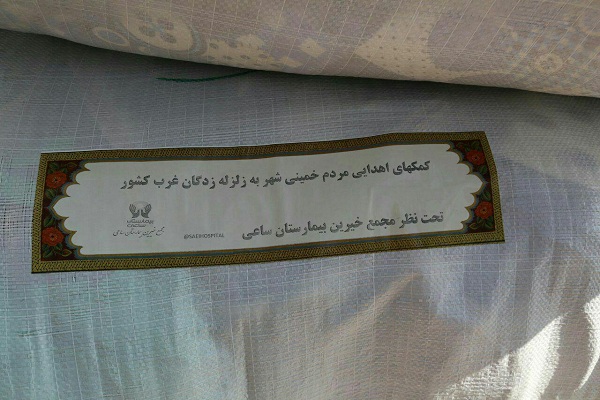 کمکهای اهدایی مردم خمینی شهر به زلزله زدگان غرب کشور
تحت نظر مجمع خیرین بیمارستان ساعی
@SAEIHOSPITAL
مجمع خیرین بیمارستان ساعی